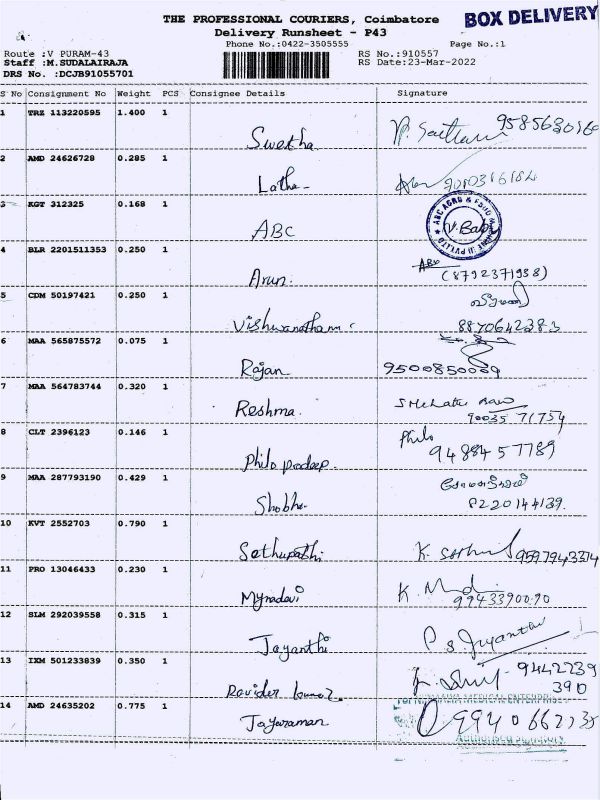 THE PROFESSIONAL COURIERS, Coimbatore
BOX DELIVERY
Delivery Runsheet - P43
Phone No.:0422-3505555
Page No.:1
Route :V PURAM-43
RS No.:910557
Staff :M.SUDALAIRAJA
RS Date:23-Mar-2022
DRS No. :DCJB91055701
S No Consignment No Weight PCS Consignee Details Signature
1 TRZ 113220595 1.400 1
Swetha 9585630160
2 AMD 24626728 0.285 1
Latha
3 KGT 312325 0.168 1
ABC V. Baby
4 BLR 2201511353 0.250 1
Arun. (8792371938)
5 CDM 50197421 0.250 1
Vishwanatham 8870642383
6 MAA 565875572 0.075 1
Rajan 9500850009
7 MAA 564783744 0.320 1
Reshma. 90035 71754
8 CLT 2396123 0.146 1
Philo pradeep. Philo 9488457789
9 MAA 287793190 0.429 1
Shobha
10 KVT 2552703 0.790 1
Sethupathi 9597943374
11 PRO 13046433 0.230 1
Mynadevi K. 9943390090
12 SLM 292039558 0.315 1
Jayanthi P S Jayanthi
13 IXM 501233839 0.350 1
Ravider kumar. 9442239
390
14 AMD 24635202 0.775 1
Jayaraman